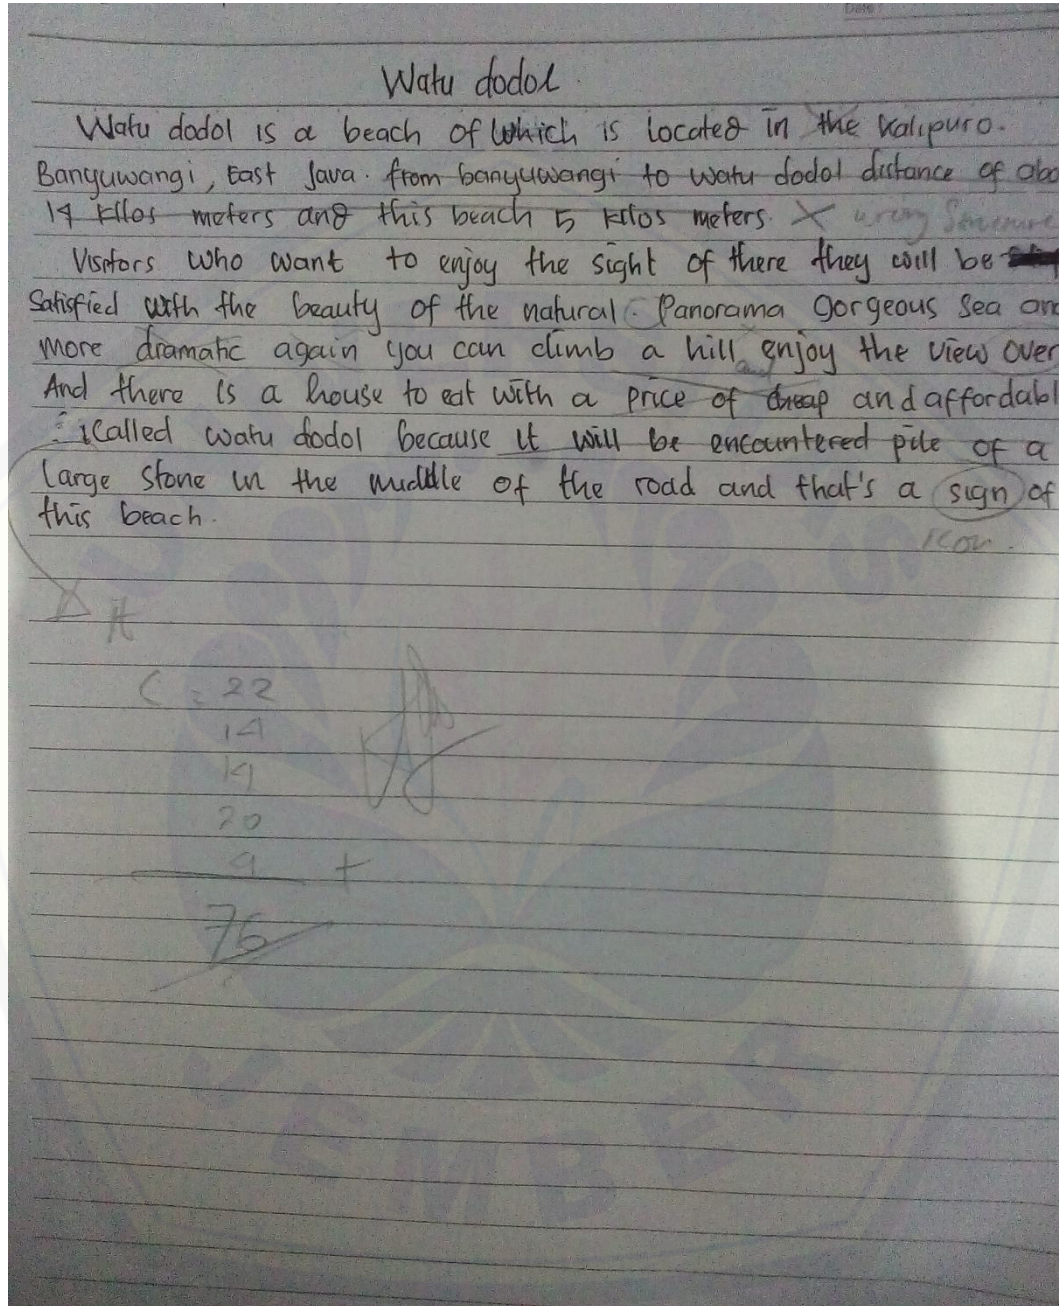 Watu dodol
Watu dodol is a beach of which is located in the Kalipuro.
Banyuwangi, East Java. from banyuwangi to watu dodol distance of abo
14 kilos meters and this beach 5 kilos meters. X wrong Structure
Visitors who want to enjoy the sight of there they will be
Satisfied with the beauty of the natural. Panorama gorgeous sea and
more dramatic again you can climb a hill enjoy the view over
and
And there is a house to eat with a price of cheap and affordabl
icalled watu dodol because it will be encountered pile of a
large stone in the middle of the road and that's a sign of
this beach.
icon.
It
C = 22
14
14
20
9 +
76
JEMBER